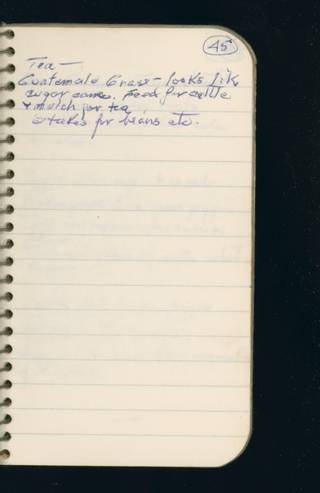 45
Tea —
Guatemala Grass — looks like
sugar cane. Feed for cattle
& mulch for tea
stakes for beans etc.